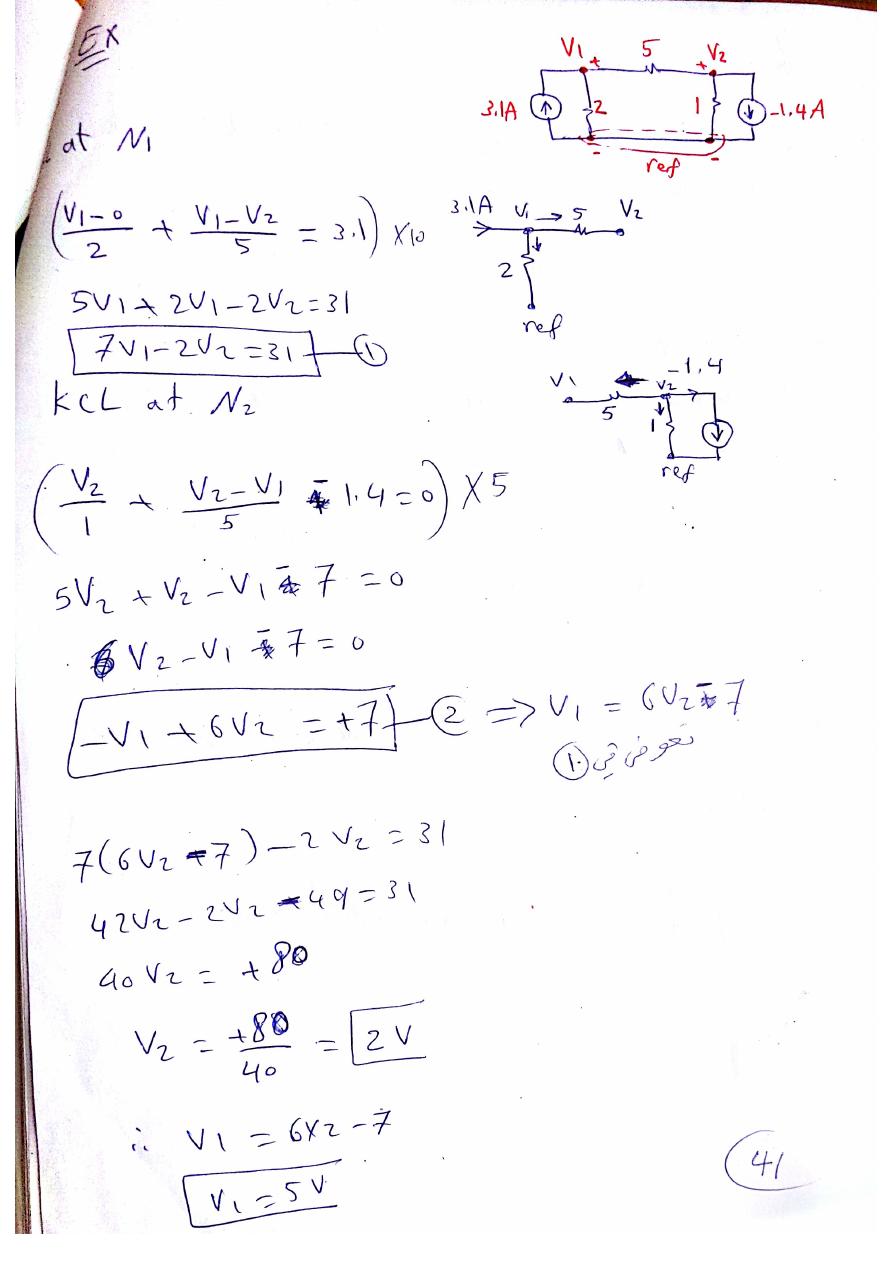 EX
V1 + 5 + V2
3.1A 2 1 -1.4A
- -
ref
at N1
(V1-0/2 + V1-V2/5 = 3.1) X10
3.1A V1 → 5 V2
2
ref
5V1 + 2V1 - 2V2 = 31
7V1 - 2V2 = 31 ①
KCL at N2
-1.4
V1 5 V2
1
ref
(V2/1 + V2-V1/5 - 1.4 = 0) X5
5V2 + V2 - V1 - 7 = 0
6V2 - V1 - 7 = 0
-V1 + 6V2 = +7 ② => V1 = 6V2 - 7
نعوض في ①
7(6V2 - 7) - 2V2 = 31
42V2 - 2V2 - 49 = 31
40V2 = +80
V2 = +80/40 = 2V
∴ V1 = 6X2 - 7
V1 = 5V
41